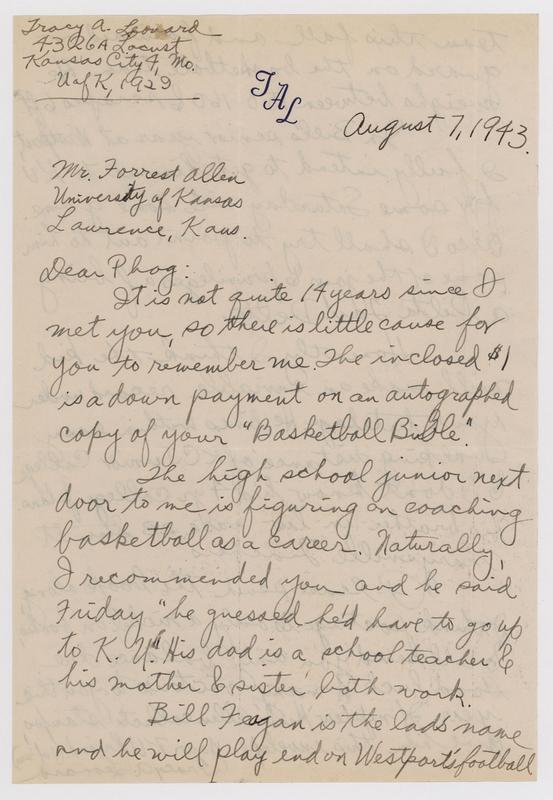 Tracy A. Leonard
4326A Locust
Kansas City 4, Mo.
U of K, 1929
TAL
August 7, 1943.
Mr. Forrest Allen
University of Kansas
Lawrence, Kans.
Dear Phog:
It is not quite 14 years since I
met you, so there is little cause for
you to remember me. The inclosed $1
is a down payment on an autographed
copy of your "Basketball Bible".
The high school junior next
door to me is figuring on coaching
basketball as a career. Naturally,
I recommended you and he said
Friday "he guessed he'd have to go up
to K. U." His dad is a school teacher &
his mother & sister both work.
Bill Feagan is the lad's name
and he will play end on Westport's football